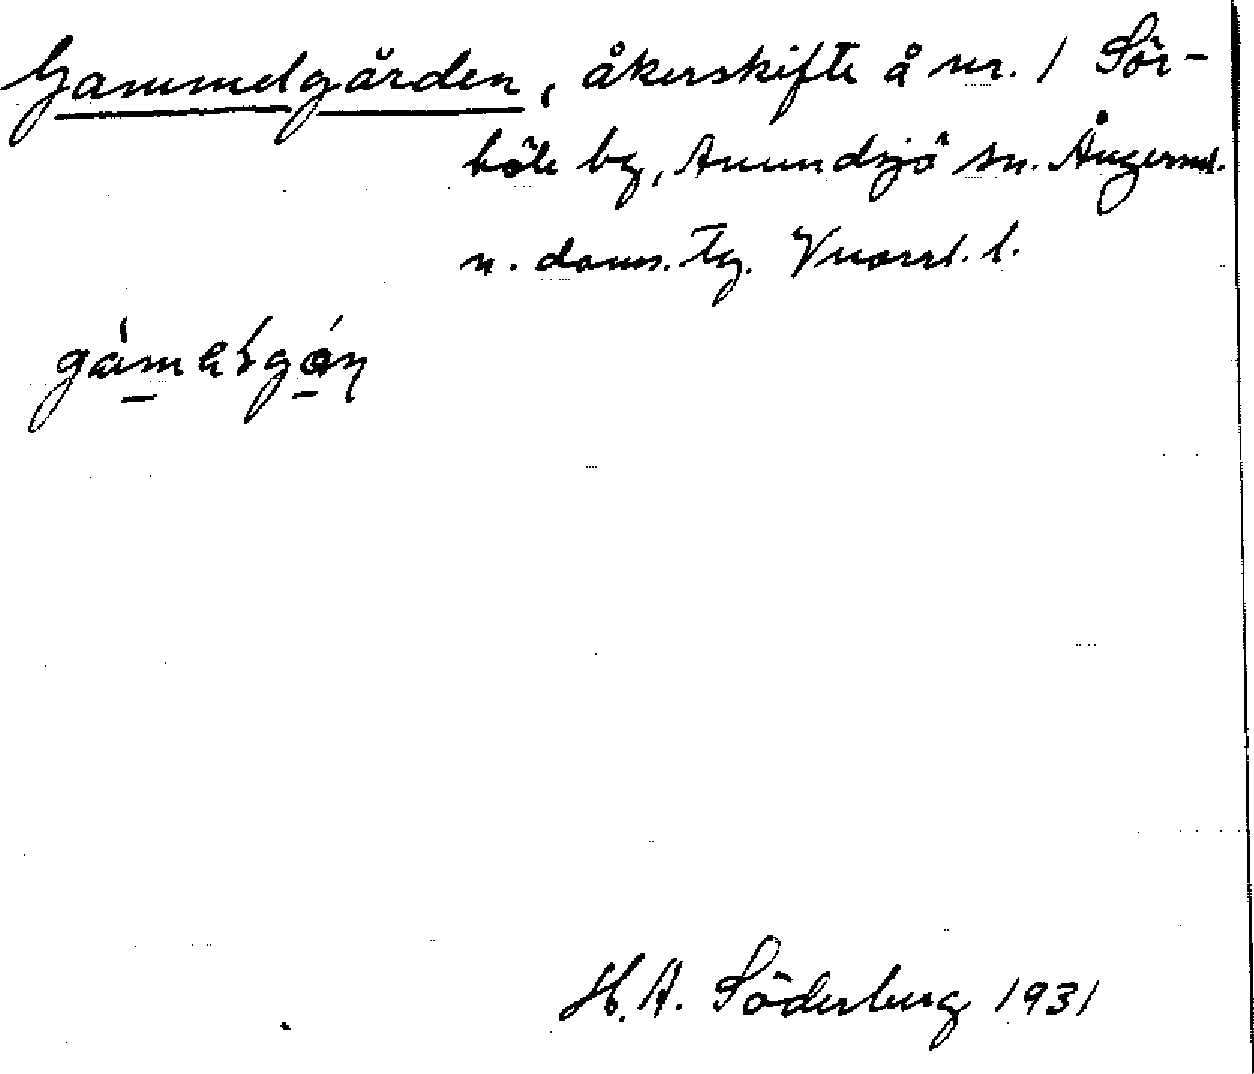 Gammelgården, åkerskifte å nr. 1 Sör-
böle by, Anundsjö sn. Ångerml.
n. doms. tg. Vnorrl. l.
H. A. Söderberg 1931